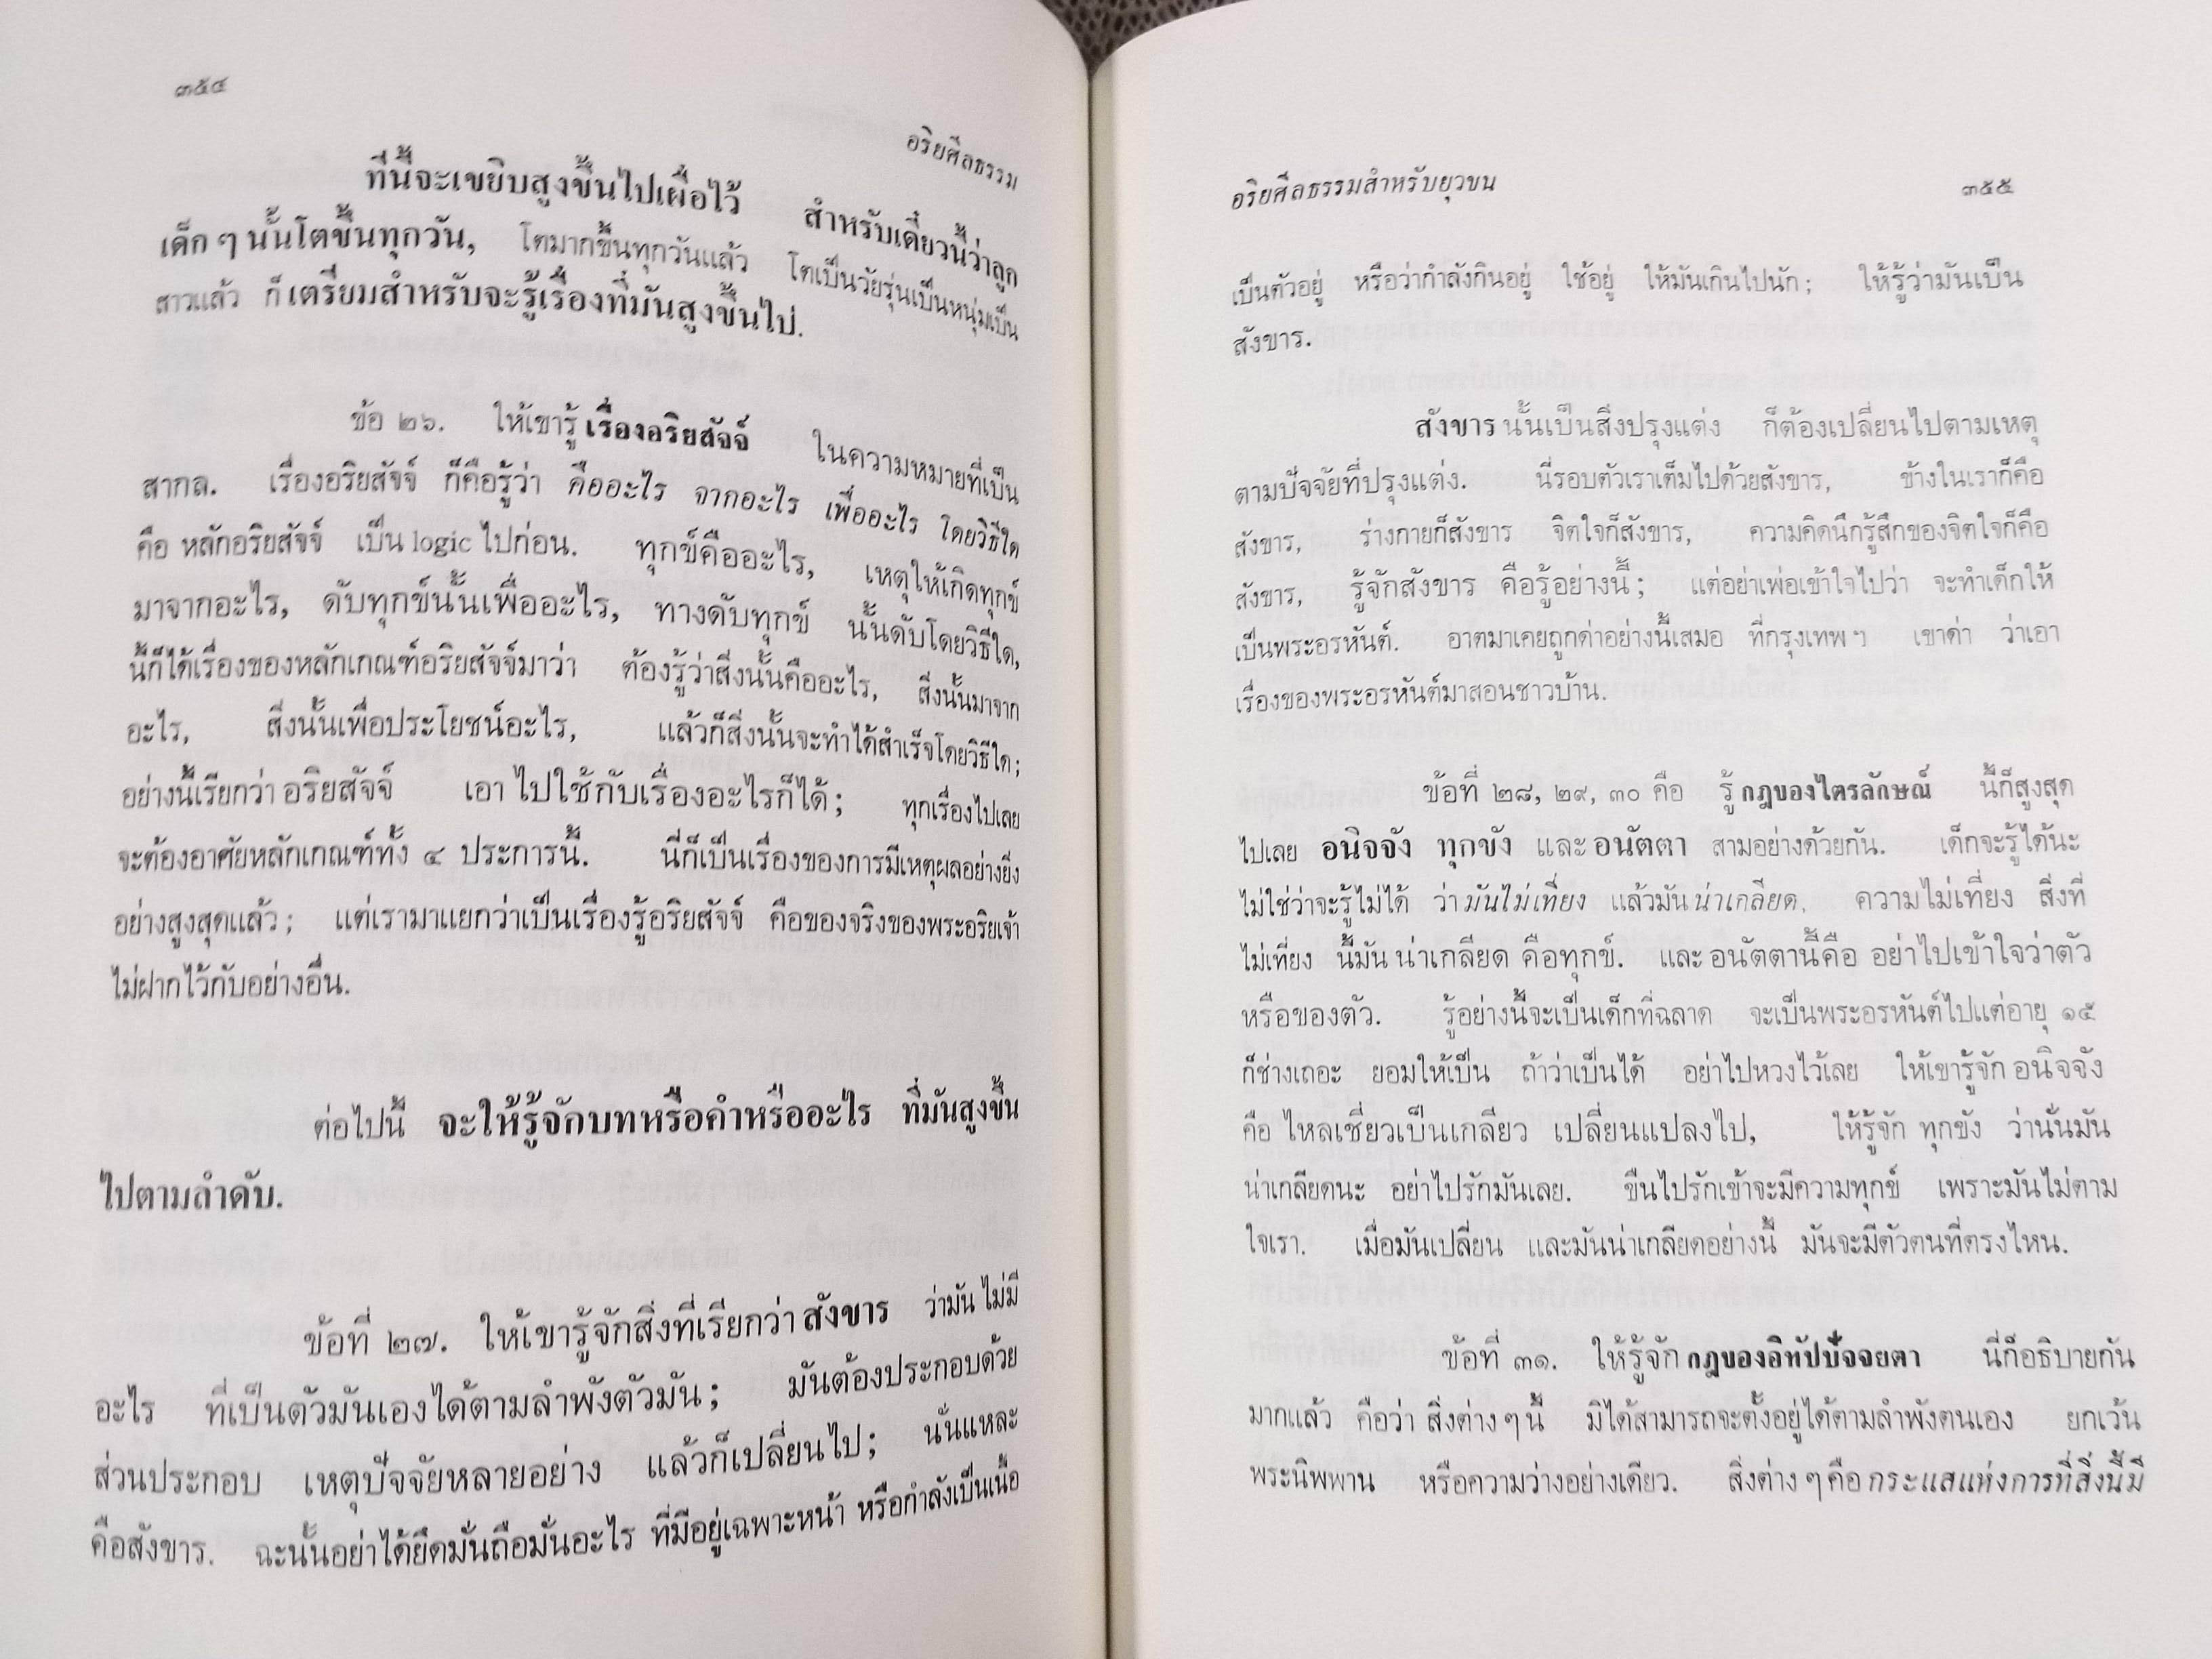 ๓๕๔
อริยศีลธรรม
ทีนี้จะเขยิบสูงขึ้นไปเผื่อไว้ สำหรับเดี๋ยวนี้ว่าลูก
เด็ก ๆ นั้นโตขึ้นทุกวัน, โตมากขึ้นทุกวันแล้ว โตเป็นวัยรุ่นเป็นหนุ่มเป็น
สาวแล้ว ก็เตรียมสำหรับจะรู้เรื่องที่มันสูงขึ้นไป.
ข้อ ๒๖. ให้เขารู้ เรื่องอริยสัจจ์ ในความหมายที่เป็น
สากล. เรื่องอริยสัจจ์ ก็คือรู้ว่า คืออะไร จากอะไร เพื่ออะไร โดยวิธีใด
คือ หลักอริยสัจจ์ เป็น logic ไปก่อน. ทุกข์คืออะไร, เหตุให้เกิดทุกข์
มาจากอะไร, ดับทุกข์นั้นเพื่ออะไร, ทางดับทุกข์ นั้นดับโดยวิธีใด,
นี้ก็ได้เรื่องของหลักเกณฑ์อริยสัจจ์มาว่า ต้องรู้ว่าสิ่งนั้นคืออะไร, สิ่งนั้นมาจาก
อะไร, สิ่งนั้นเพื่อประโยชน์อะไร, แล้วก็สิ่งนั้นจะทำได้สำเร็จโดยวิธีใด;
อย่างนี้เรียกว่า อริยสัจจ์ เอาไปใช้กับเรื่องอะไรก็ได้; ทุกเรื่องไปเลย
จะต้องอาศัยหลักเกณฑ์ทั้ง ๔ ประการนี้. นี่ก็เป็นเรื่องของการมีเหตุผลอย่างยิ่ง
อย่างสูงสุดแล้ว; แต่เรามาแยกว่าเป็นเรื่องรู้อริยสัจจ์ คือของจริงของพระอริยเจ้า
ไม่ฝากไว้กับอย่างอื่น.
ต่อไปนี้ จะให้รู้จักบทหรือคำหรืออะไร ที่มันสูงขึ้น
ไปตามลำดับ.
ข้อที่ ๒๗. ให้เขารู้จักสิ่งที่เรียกว่า สังขาร ว่ามัน ไม่มี
อะไร ที่เป็นตัวมันเองได้ตามลำพังตัวมัน; มันต้องประกอบด้วย
ส่วนประกอบ เหตุปัจจัยหลายอย่าง แล้วก็เปลี่ยนไป; นั่นแหละ
คือสังขาร. ฉะนั้นอย่าได้ยึดมั่นถือมั่นอะไร ที่มีอยู่เฉพาะหน้า หรือกำลังเป็นเนื้อ
อริยศีลธรรมสำหรับยุวชน
๓๕๕
เป็นตัวอยู่ หรือว่ากำลังกินอยู่ ใช้อยู่ ให้มันเกินไปนัก; ให้รู้ว่ามันเป็น
สังขาร.
สังขาร นั้นเป็นสิ่งปรุงแต่ง ก็ต้องเปลี่ยนไปตามเหตุ
ตามปัจจัยที่ปรุงแต่ง. นี่รอบตัวเราเต็มไปด้วยสังขาร, ข้างในเราก็คือ
สังขาร, ร่างกายก็สังขาร จิตใจก็สังขาร, ความคิดนึกรู้สึกของจิตใจก็คือ
สังขาร, รู้จักสังขาร คือรู้อย่างนี้; แต่อย่าเพ่อเข้าใจไปว่า จะทำเด็กให้
เป็นพระอรหันต์. อาตมาเคยถูกด่าอย่างนี้เสมอ ที่กรุงเทพฯ เขาด่า ว่าเอา
เรื่องของพระอรหันต์มาสอนชาวบ้าน.
ข้อที่ ๒๘, ๒๙, ๓๐ คือ รู้ กฎของไตรลักษณ์ นี้ก็สูงสุด
ไปเลย อนิจจัง ทุกขัง และ อนัตตา สามอย่างด้วยกัน. เด็กจะรู้ได้นะ
ไม่ใช่ว่าจะรู้ไม่ได้ ว่ามันไม่เที่ยง แล้วมันน่าเกลียด. ความไม่เที่ยง สิ่งที่
ไม่เที่ยง นี้มัน น่าเกลียด คือทุกข์. และ อนัตตานี้คือ อย่าไปเข้าใจว่าตัว
หรือของตัว. รู้อย่างนี้จะเป็นเด็กที่ฉลาด จะเป็นพระอรหันต์ไปแต่อายุ ๑๕
ก็ช่างเถอะ ยอมให้เป็น ถ้าว่าเป็นได้ อย่าไปหวงไว้เลย ให้เขารู้จัก อนิจจัง
คือ ไหลเชี่ยวเป็นเกลียว เปลี่ยนแปลงไป, ให้รู้จัก ทุกขัง ว่านั่นมัน
น่าเกลียดนะ อย่าไปรักมันเลย. ขืนไปรักเข้าจะมีความทุกข์ เพราะมันไม่ตาม
ใจเรา. เมื่อมันเปลี่ยน และมันน่าเกลียดอย่างนี้ มันจะมีตัวตนที่ตรงไหน.
ข้อที่ ๓๑. ให้รู้จัก กฎของอิทัปปัจจยตา นี่ก็อธิบายกัน
มากแล้ว คือว่า สิ่งต่าง ๆ นี้ มิได้สามารถจะตั้งอยู่ได้ตามลำพังตนเอง ยกเว้น
พระนิพพาน หรือความว่างอย่างเดียว. สิ่งต่าง ๆ คือ กระแสแห่งการที่สิ่งนี้มี